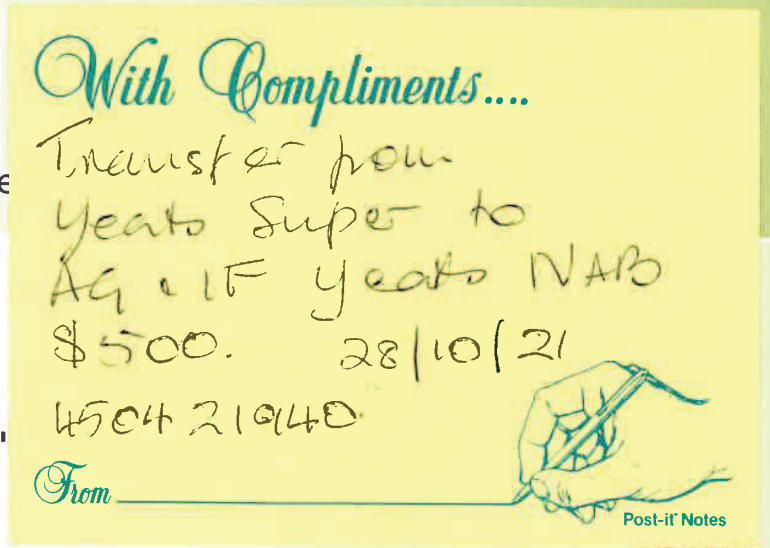 With Compliments....
Transfer from
Yeats Super to
AG & IF Yeats NAB
$500. 28/10/21
4504 21940
From
Post-it® Notes